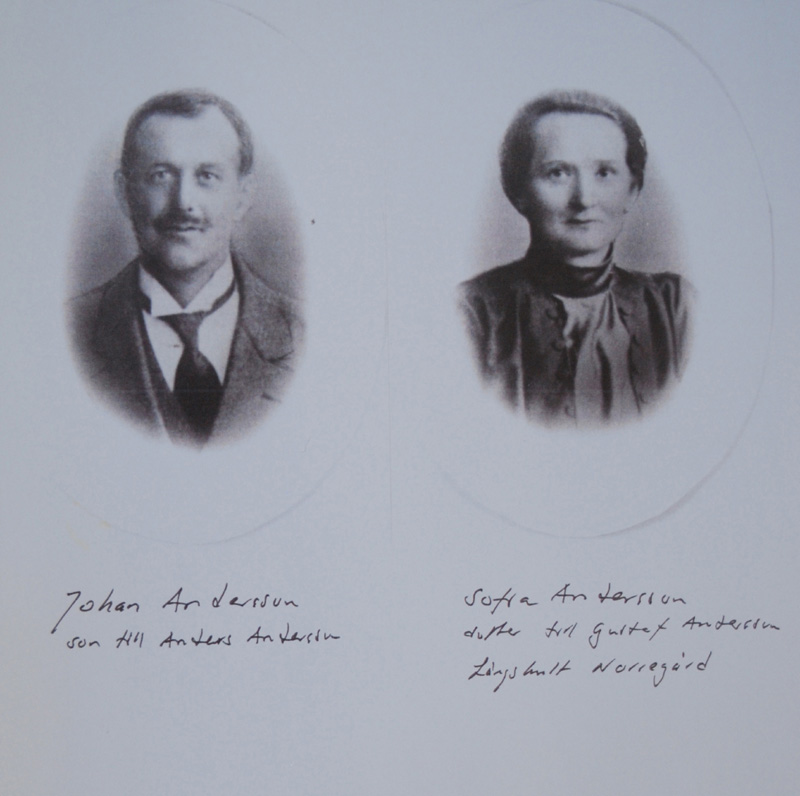 Johan Andersson
son till Anders Andersson
Sofia Andersson
dotter till Gustaf Andersson
Långshult Norregård